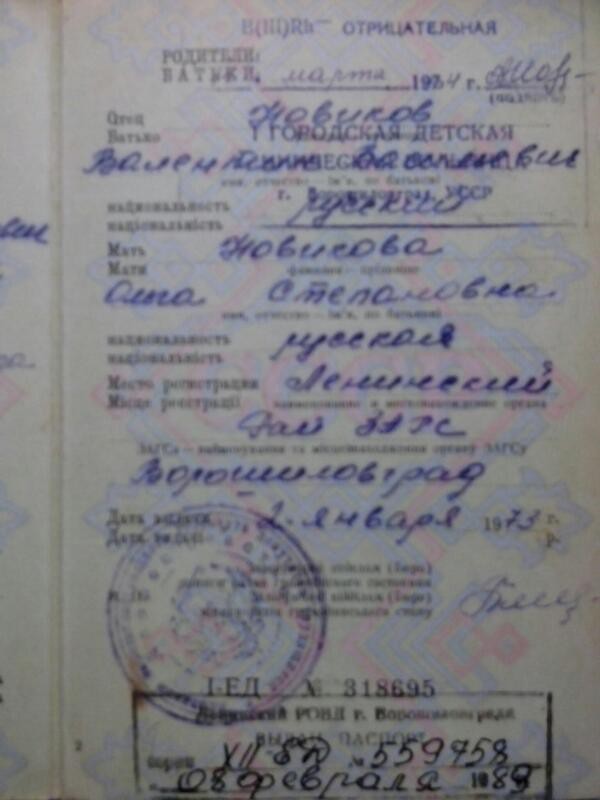 В(III)Rh— ОТРИЦАТЕЛЬНАЯ
РОДИТЕЛИ:
БАТЬКИ. марта 1974 г.
Отец Новиков
Батько 1 ГОРОДСКАЯ ДЕТСКАЯ
Валентин Васильевич
имя, отчество — ім'я, по батькові
г. Ворошиловград УССР
национальность русский
національність
Мать Новикова
Мати фамилия — прізвище
Ольга Степановна
имя, отчество — ім'я, по батькові
национальность русская
національність
Место регистрации Ленинский
Місце реєстрації наименование и местонахождение органа
Рай ЗАГС
ЗАГСа — найменування та місцезнаходження органу ЗАГСу
Ворошиловград
Дата выдачи 2 января 1973 г.
Дата видачі р.
I-ЕД № 318695
Ленинский РОВД г. Ворошиловграда
ВЫДАН ПАСПОРТ
серии XII-ЕД № 559758
08 февраля 1989
2